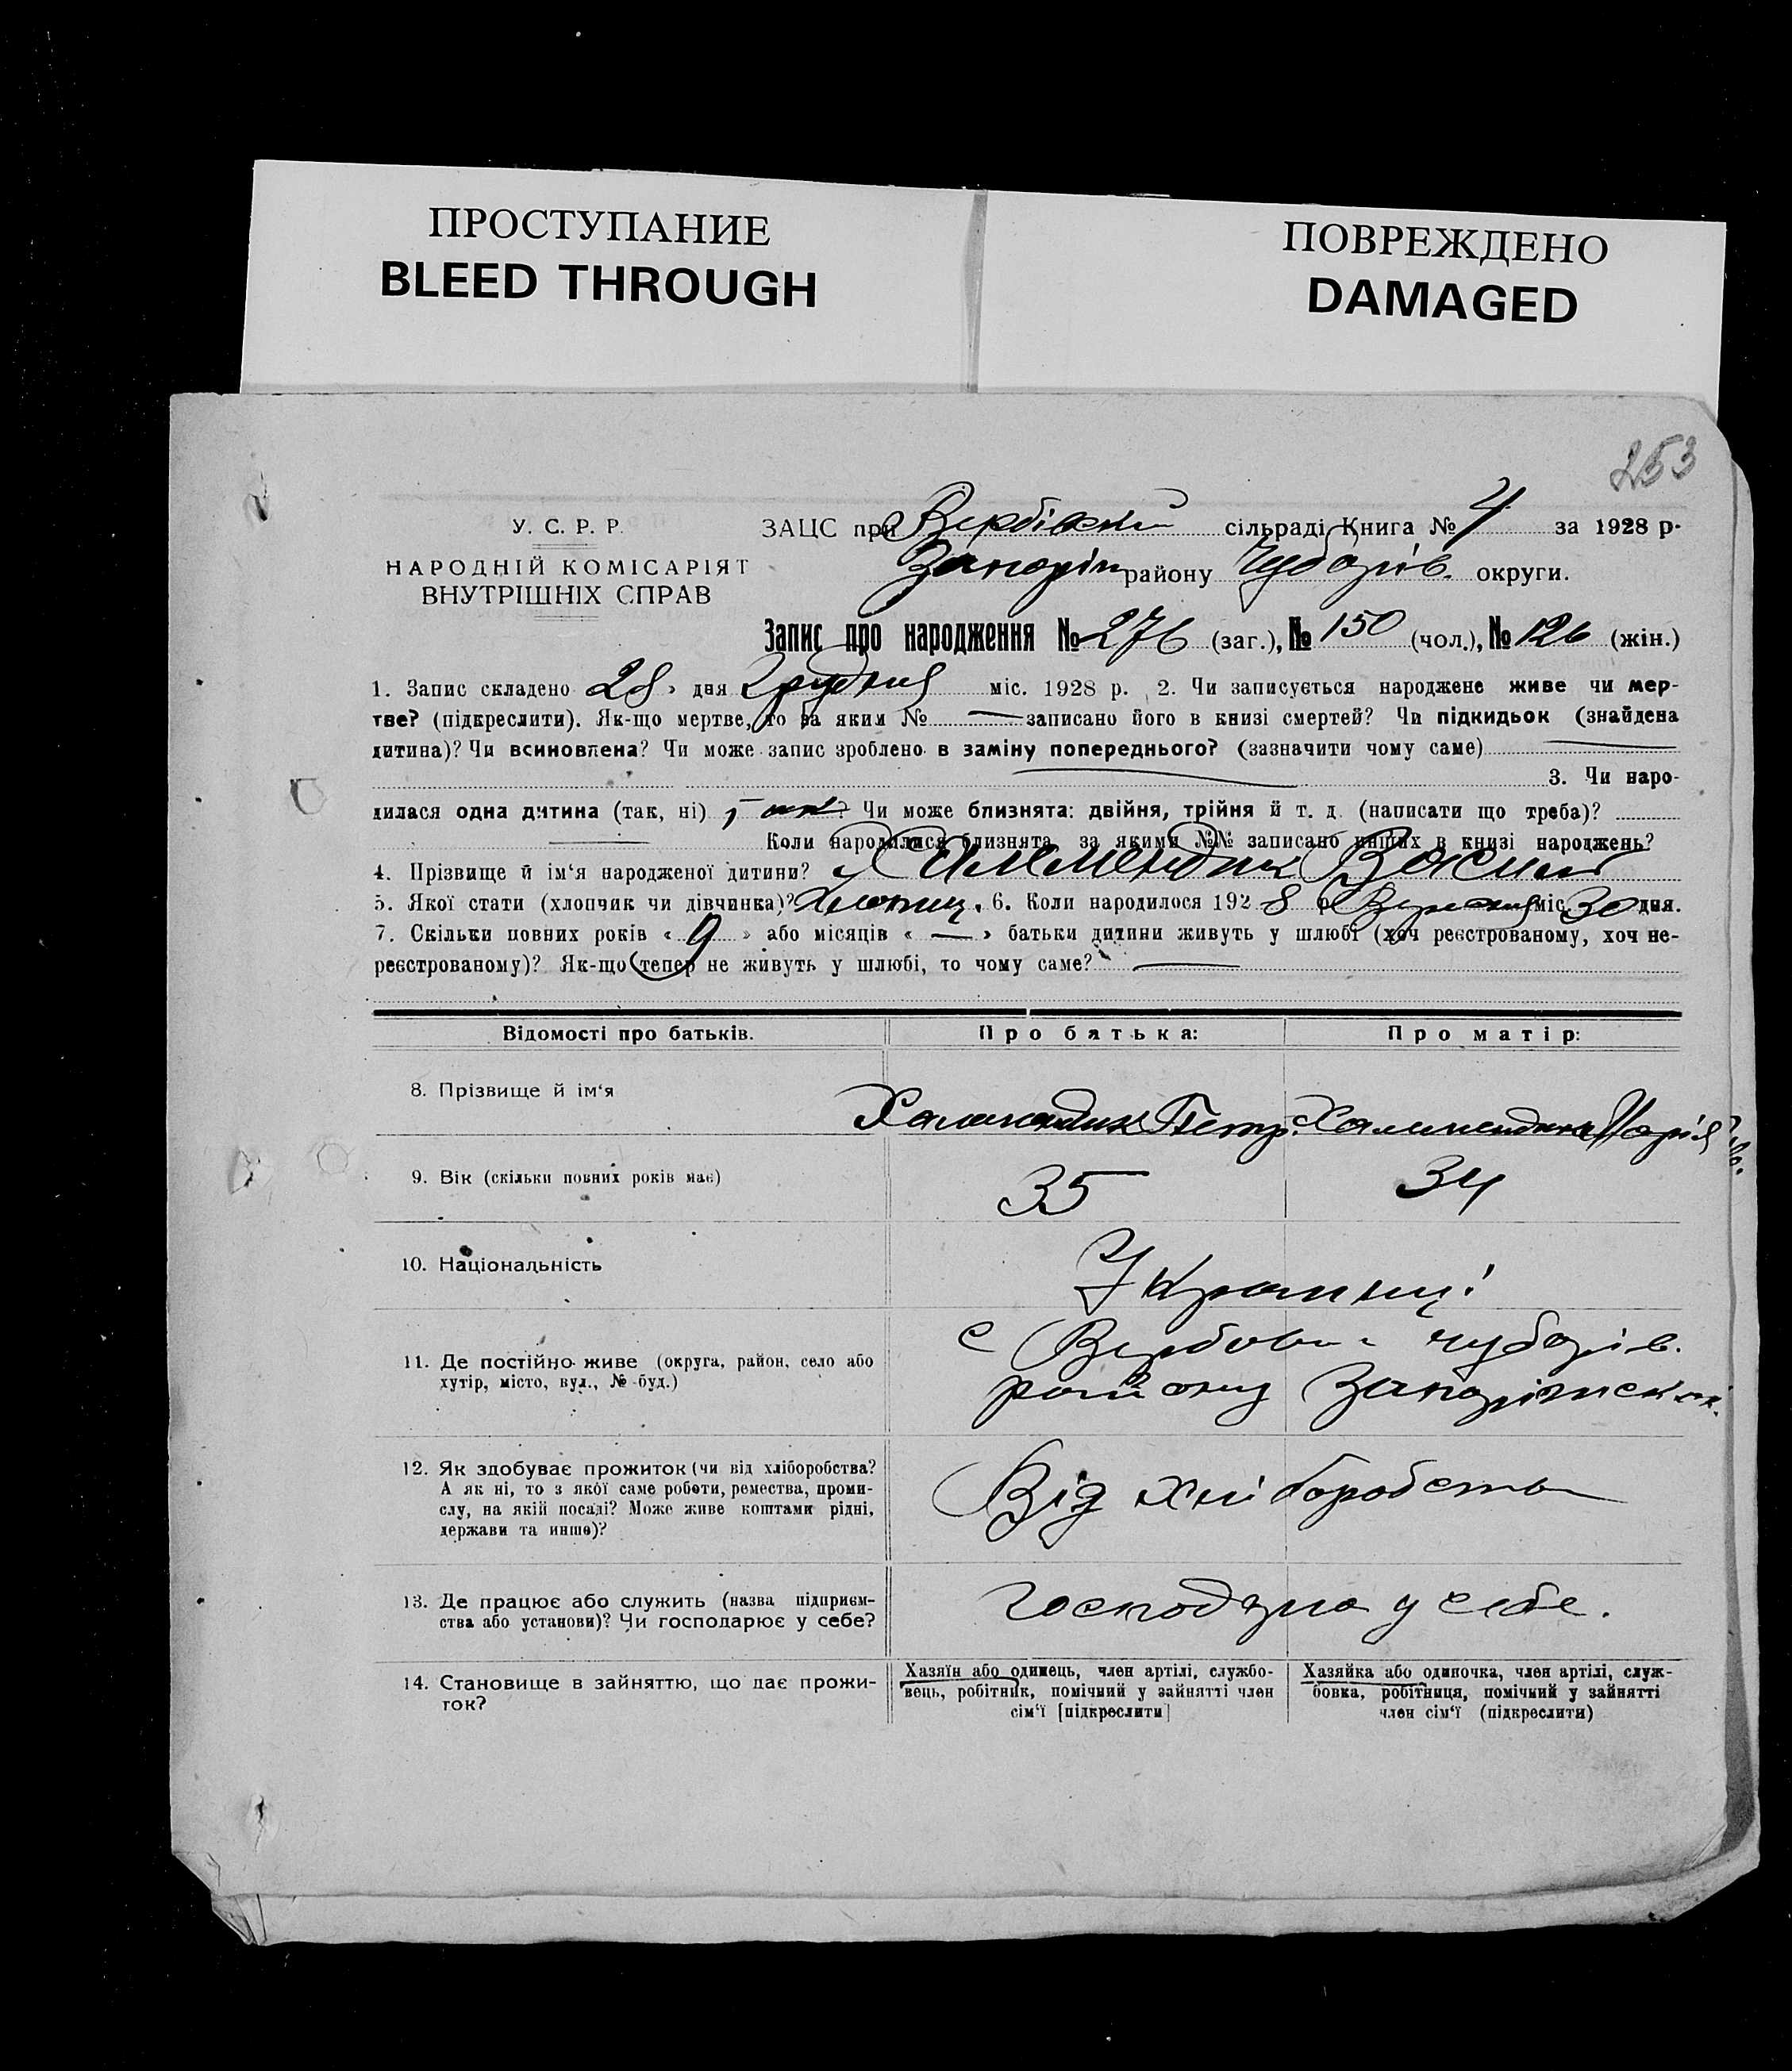 ПРОСТУПАНИЕ
BLEED THROUGH
ПОВРЕЖДЕНО
DAMAGED
253
У. С. Р. Р.
НАРОДНІЙ КОМІСАРІЯТ
ВНУТРІШНІХ СПРАВ
ЗАЦС при Вербівскі сільраді Книга № 4 за 1928 р.
Запоріж району Чубарів. округи.
Запис про народження № 276 (заг.), № 150 (чол.), № 126 (жін.)
1. Запис складено 28 » дня Грудня міс. 1928 р. 2. Чи записується народжене живе чи мер-
тве? (підкреслити). Як-що мертве, то за яким № — записано його в книзі смертей? Чи підкидьок (знайдена
дитина)? Чи всиновлена? Чи може запис зроблено в заміну попереднього? (зазначити чому саме) —
3. Чи наро-
дилася одна дитина (так, ні) 1 так? Чи може близнята: двійня, трійня й т. д. (написати що треба)?
— Коли народилися близнята, за якими №№ записано инших в книзі народжень?
4. Прізвище й ім‘я народженої дитини? Халимендик Василь
5. Якої стати (хлопчик чи дівчинка)? Хлопец. 6. Коли народилося 1928 р. Вересня міс. 30 дня.
7. Скільки повних років « 9 » або місяців « — » батьки дитини живуть у шлюбі (хоч реєстрованому, хоч не-
реєстрованому)? Як-що тепер не живуть у шлюбі, то чому саме? —
Відомості про батьків.
Про батька:
Про матір:
8. Прізвище й ім‘я
Халимендик Петр.
Халимендик Марія
9. Вік (скільки повних років має)
35
34
10. Національність
Українці
11. Де постійно живе (округа, район, село або
хутір, місто, вул., № буд.)
с Вербова Чубарів.
району Запоріжскої.
12. Як здобуває прожиток (чи від хліборобства?
А як ні, то з якої саме роботи, ремества, проми-
слу, на якій посаді? Може живе коштами рідні,
держави та инше)?
Від хліборобства
13. Де працює або служить (назва підприєм-
ства або установи)? Чи господарює у себе?
Господарю у себе.
14. Становище в зайняттю, що дає прожи-
ток?
Хазяїн або одинець, член артілі, службо-
вець, робітник, помічний у зайнятті член
сім‘ї [підкреслити]
Хазяйка або одиночка, член артілі, служ-
бовка, робітниця, помічний у зайнятті
член сім‘ї (підкреслити)